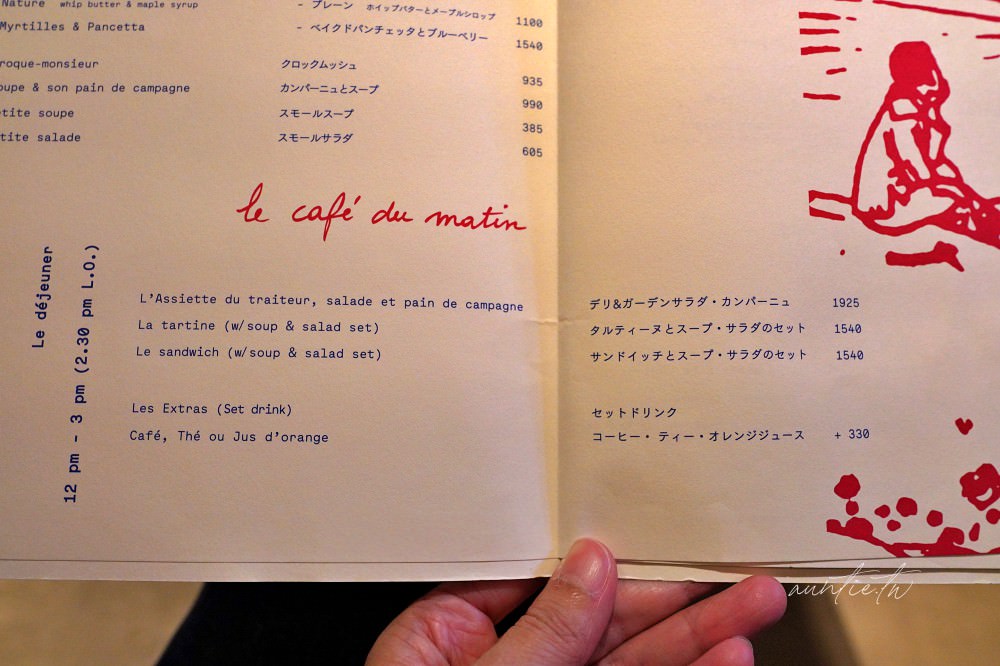 Nature whip butter & maple syrup - プレーン ホイップバターとメープルシロップ 1100
Myrtilles & Pancetta - ベイクドパンチェッタとブルーベリー 1540
roque-monsieur クロックムッシュ 935
oupe & son pain de campagne カンパーニュとスープ 990
etite soupe スモールスープ 385
tite salade スモールサラダ 605
le café du matin
Le déjeuner
12 pm - 3 pm (2.30 pm L.O.)
L'Assiette du traiteur, salade et pain de campagne デリ&ガーデンサラダ・カンパーニュ 1925
La tartine (w/soup & salad set) タルティーヌとスープ・サラダのセット 1540
Le sandwich (w/soup & salad set) サンドイッチとスープ・サラダのセット 1540
Les Extras (Set drink) セットドリンク
Café, Thé ou Jus d'orange コーヒー・ ティー・オレンジジュース + 330
auntie.tw